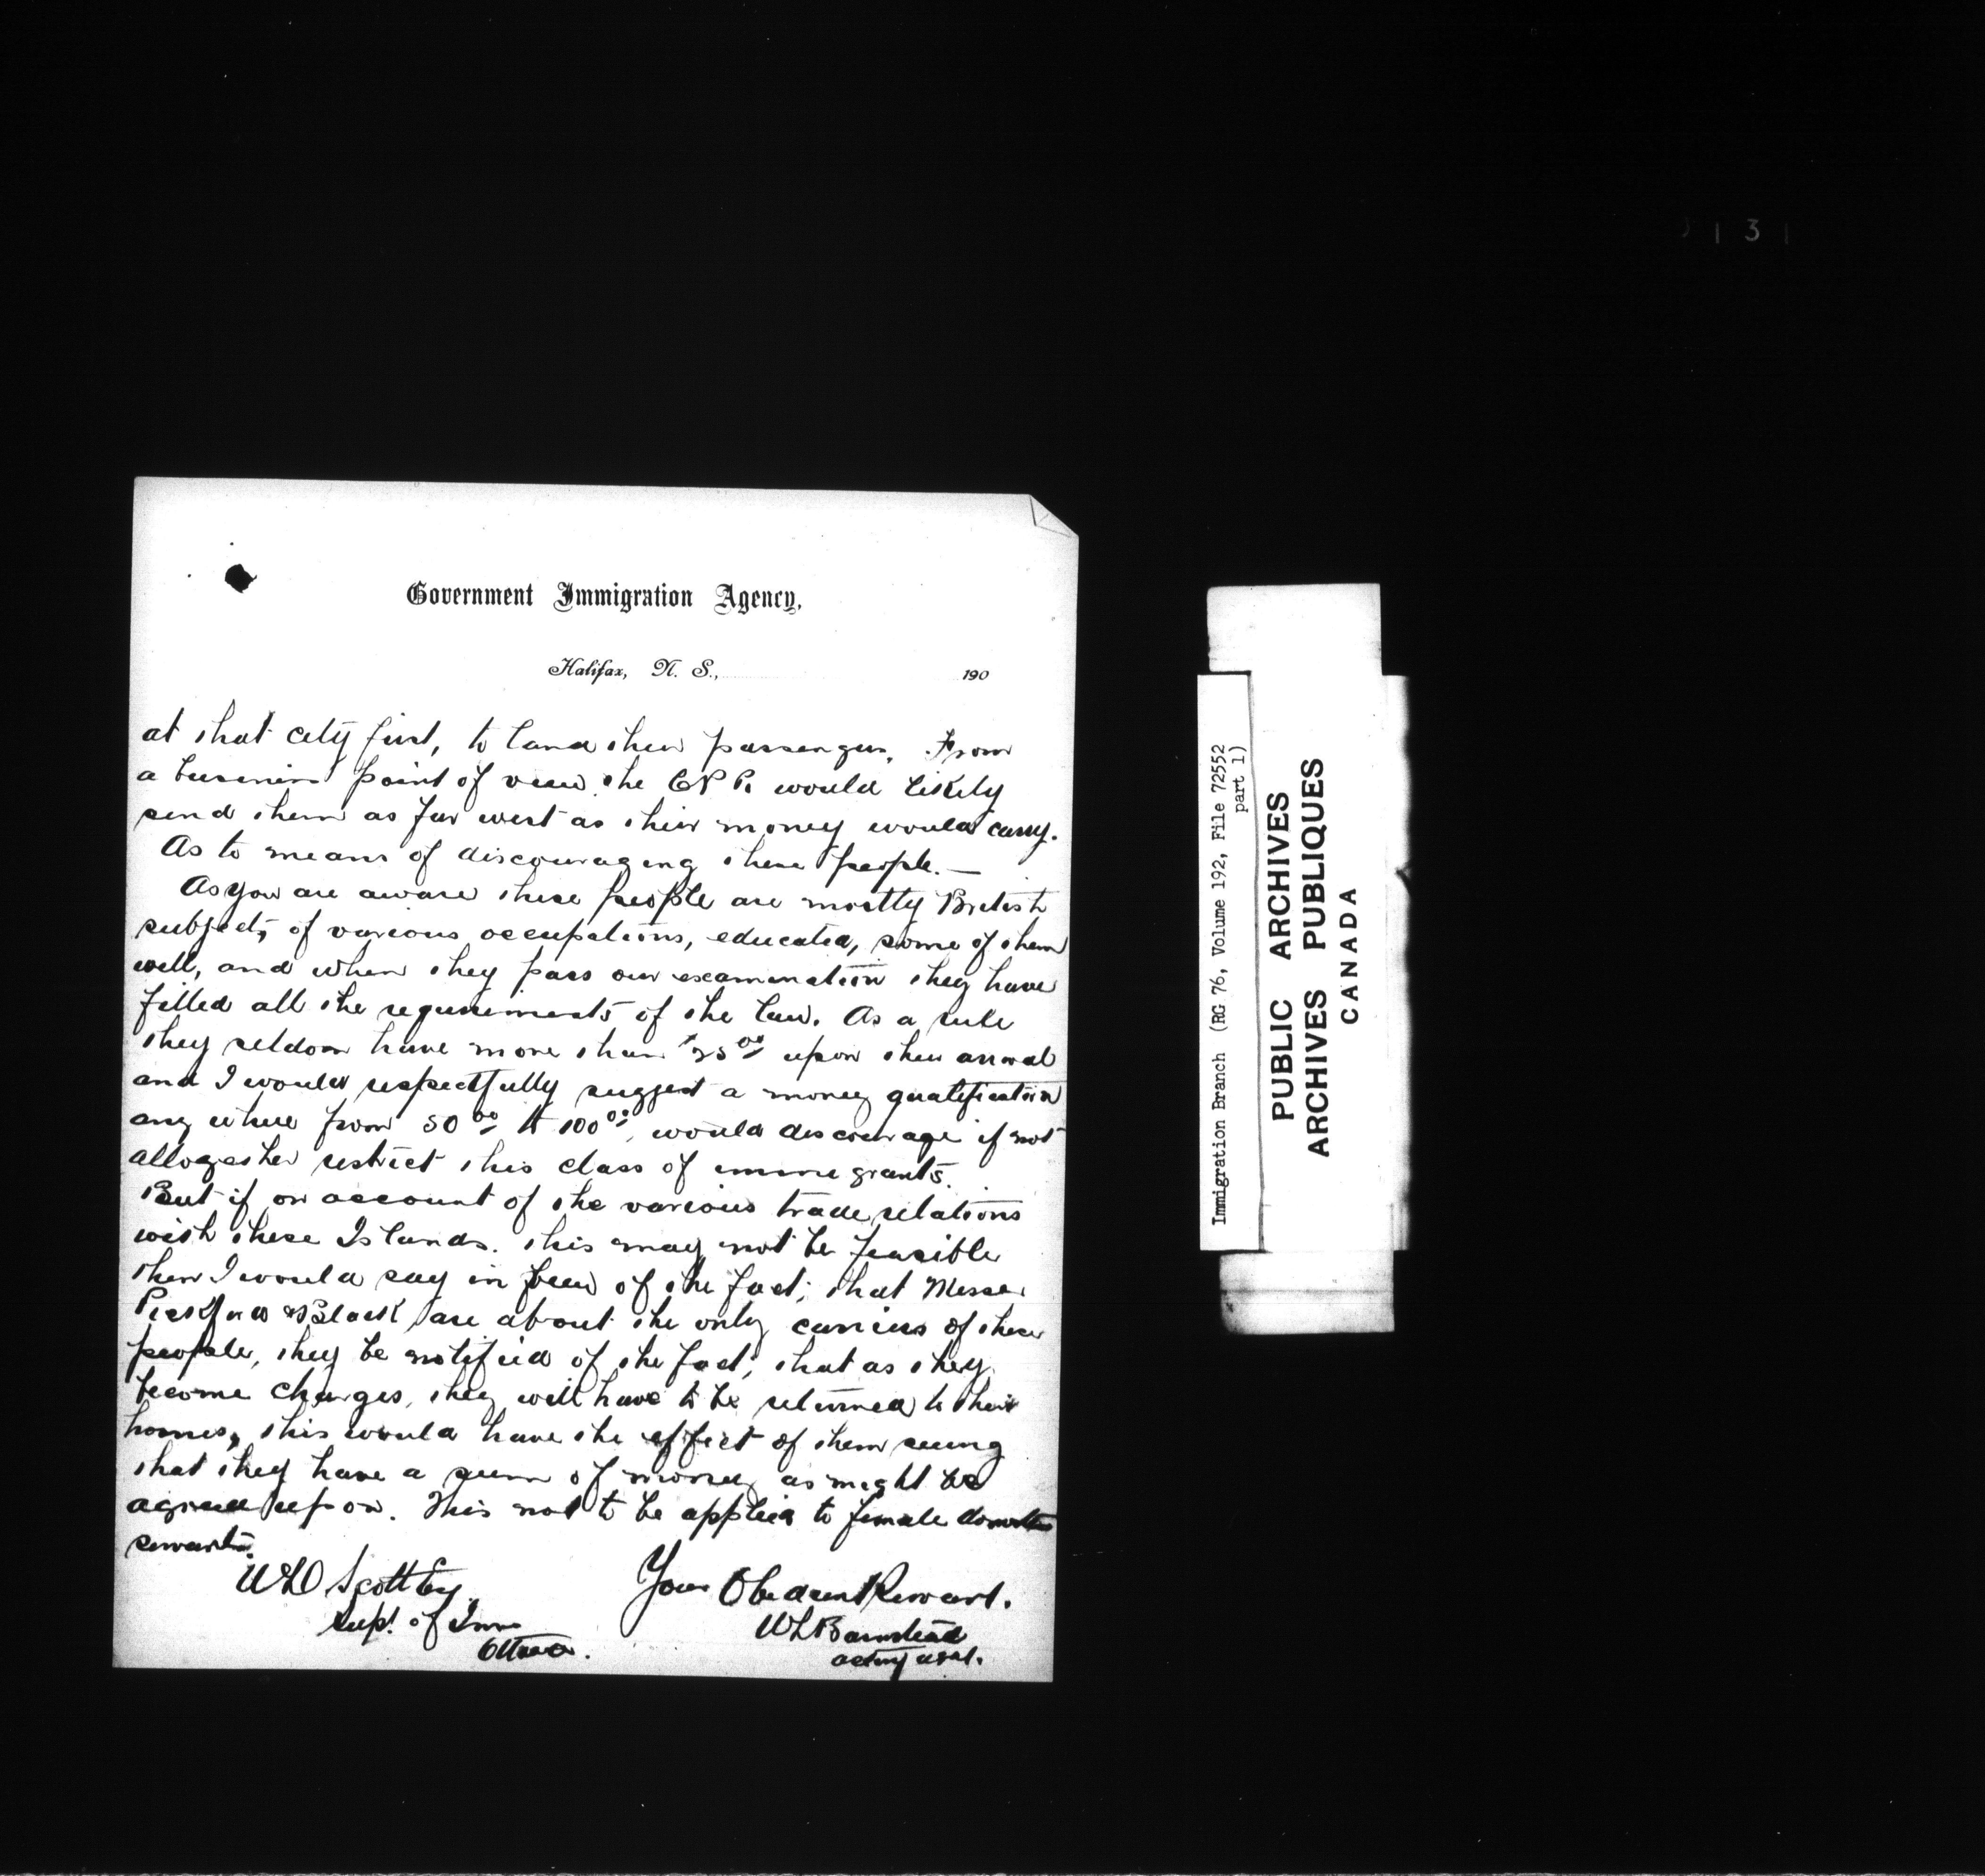 Government Immigration Agency,
Halifax, N. S., 190
at that city first, to land their passengers. From
a business point of view the C P R. would likely
send them as far west as their money would carry.
As to means of discouraging these people. —
As you are aware these people are mostly British
subjects, of various occupations, educated, some of them
well, and when they pass our examination they have
filled all the requirements of the law. As a rule
they seldom have more than $25 00 upon their arrival
and I would respectfully suggest a money qualification
any where from 50 00 to 100 00, would discourage if not
allogether restrict this class of immigrants.
But if on account of the various trade relations
with these Islands. this may not be feasible
then I would say in of the fact, that Messrs
Pickford & Black are about the only carriers of these
people, they be notified of the fact, that as they
become charges, they will have to be returned to their
homes, this would have the effect of them seeing
that they have a sum of money as might be
agreed upon. This not to be applied to female domestic
servants.
W D Scott Esq
Supt. of Imm
Ottawa.
Your Obedient Servant.
W L Barnstead
acting agent.
Immigration Branch (RG 76, Volume 192, File 72552
part 1)
PUBLIC ARCHIVES
ARCHIVES PUBLIQUES
CANADA